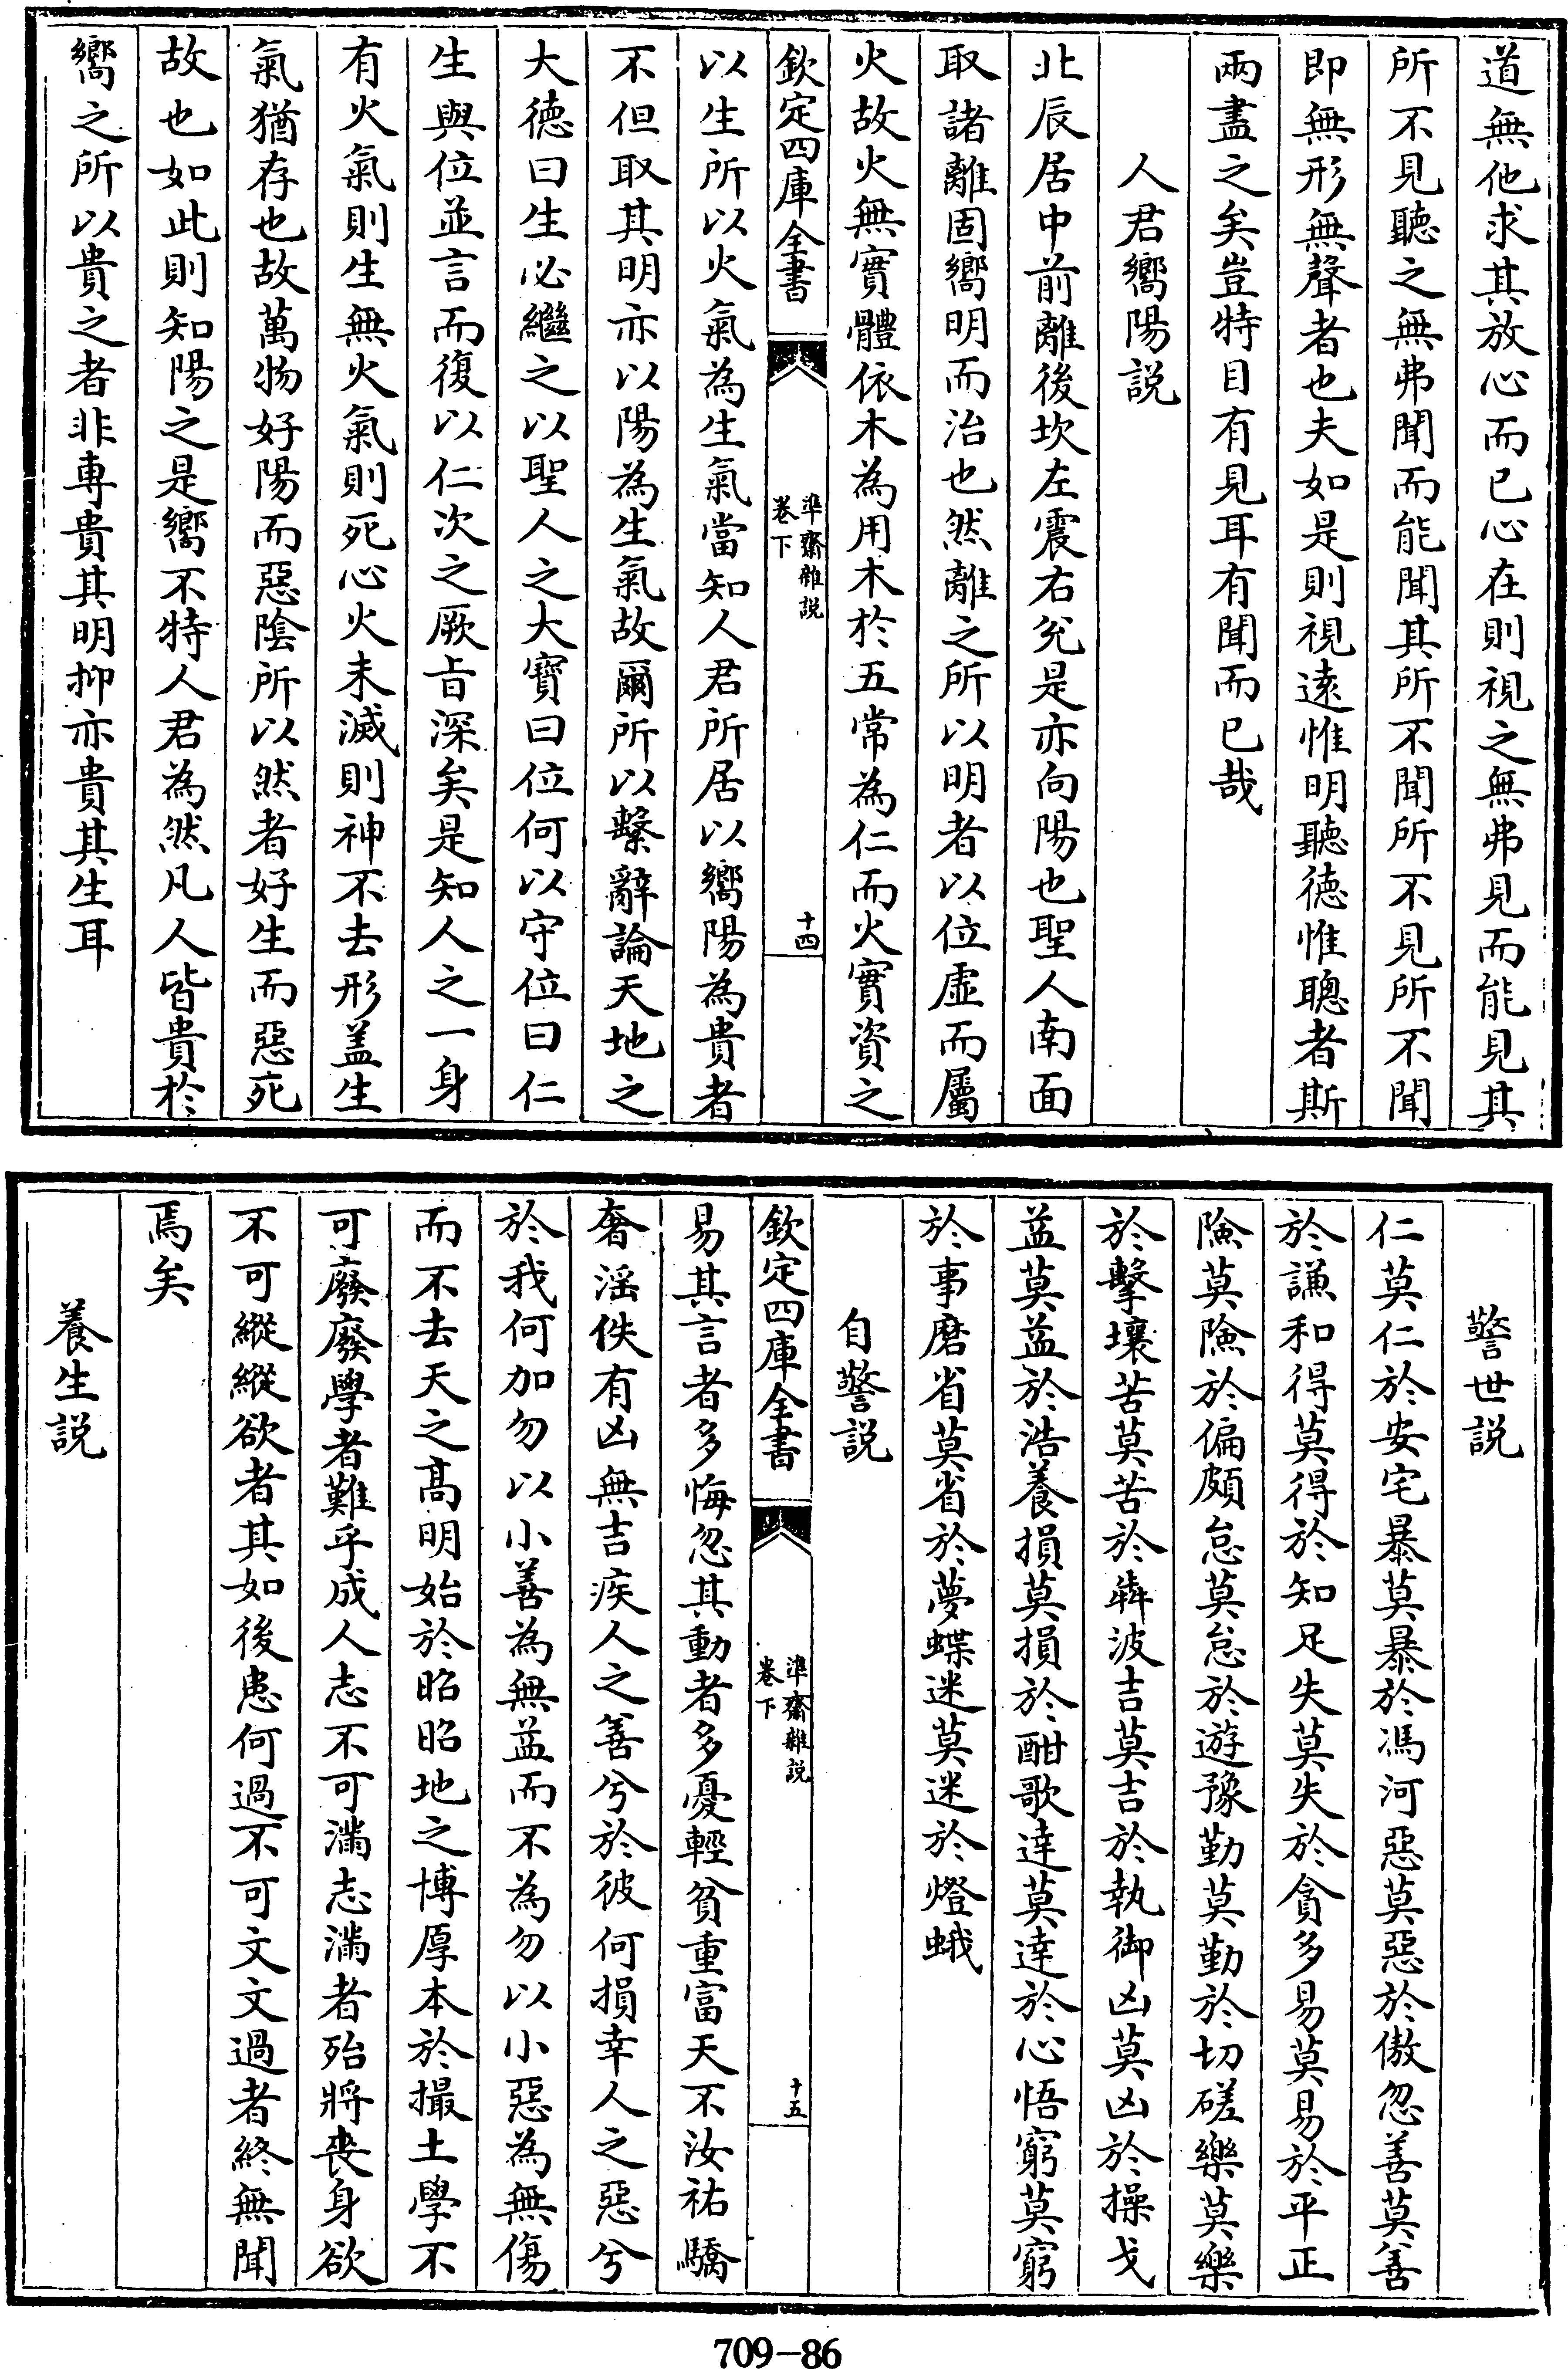 道無他求其放心而已心在則視之無弗見而能見其
所不見聽之無弗聞而能聞其所不聞所不見所不聞
即無形無聲者也夫如是則視遠惟明聽德惟聰者斯
兩盡之矣豈特目有見耳有聞而已哉
人君嚮陽説
北辰居中前離後坎左震右兊是亦向陽也聖人南面
取諸離固嚮明而治也然離之所以明者以位虛而屬
火故火無實體依木為用木於五常為仁而火實資之
欽定四庫全書
準齋雜説
卷下
十四
以生所以火氣為生氣當知人君所居以嚮陽為貴者
不但取其明亦以陽為生氣故爾所以繫辭論天地之
大德曰生必繼之以聖人之大寶曰位何以守位曰仁
生與位並言而復以仁次之厥旨深矣是知人之一身
有火氣則生無火氣則死心火未滅則神不去形盖生
氣猶存也故萬物好陽而惡陰所以然者好生而惡死
故也如此則知陽之是嚮不特人君為然凡人皆貴於
嚮之所以貴之者非専貴其明抑亦貴其生耳
警世説
仁莫仁於安宅暴莫暴於馮河惡莫惡於傲忽善莫善
於謙和得莫得於知足失莫失於貪多易莫易於平正
險莫險於偏頗怠莫怠於遊豫勤莫勤於切磋樂莫樂
於擊壤苦莫苦於犇波吉莫吉於執御凶莫凶於操戈
益莫益於浩養損莫損於酣歌達莫達於心悟窮莫窮
於事磨省莫省於夢蝶迷莫迷於燈蛾
自警説
欽定四庫全書
準齋雜説
卷下
十五
易其言者多悔忽其動者多憂輕貧重富天不汝祐驕
奢滛佚有凶無吉疾人之善兮於彼何損幸人之惡兮
於我何加勿以小善為無益而不為勿以小惡為無傷
而不去天之髙明始於昭昭地之博厚本於撮土學不
可廢廢學者難乎成人志不可滿志滿者殆將喪身欲
不可縱縱欲者其如後患何過不可文文過者終無聞
焉矣
養生説
709-86